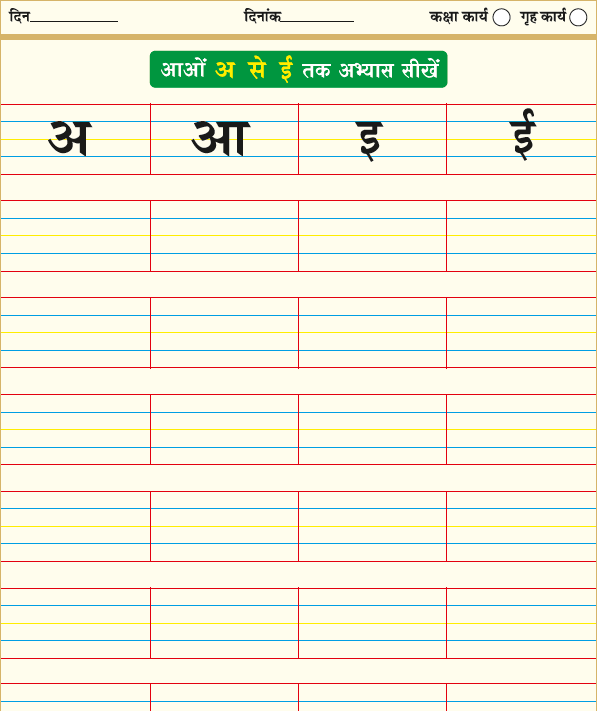 दिन__________ दिनांक__________ कक्षा कार्य गृह कार्य
आओं अ से ई तक अभ्यास सीखें
अ आ इ ई